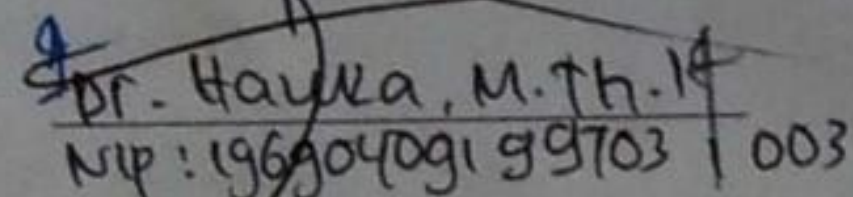 Dr. Hayka, M.Th.I
NIP : 19690409199703 1 003